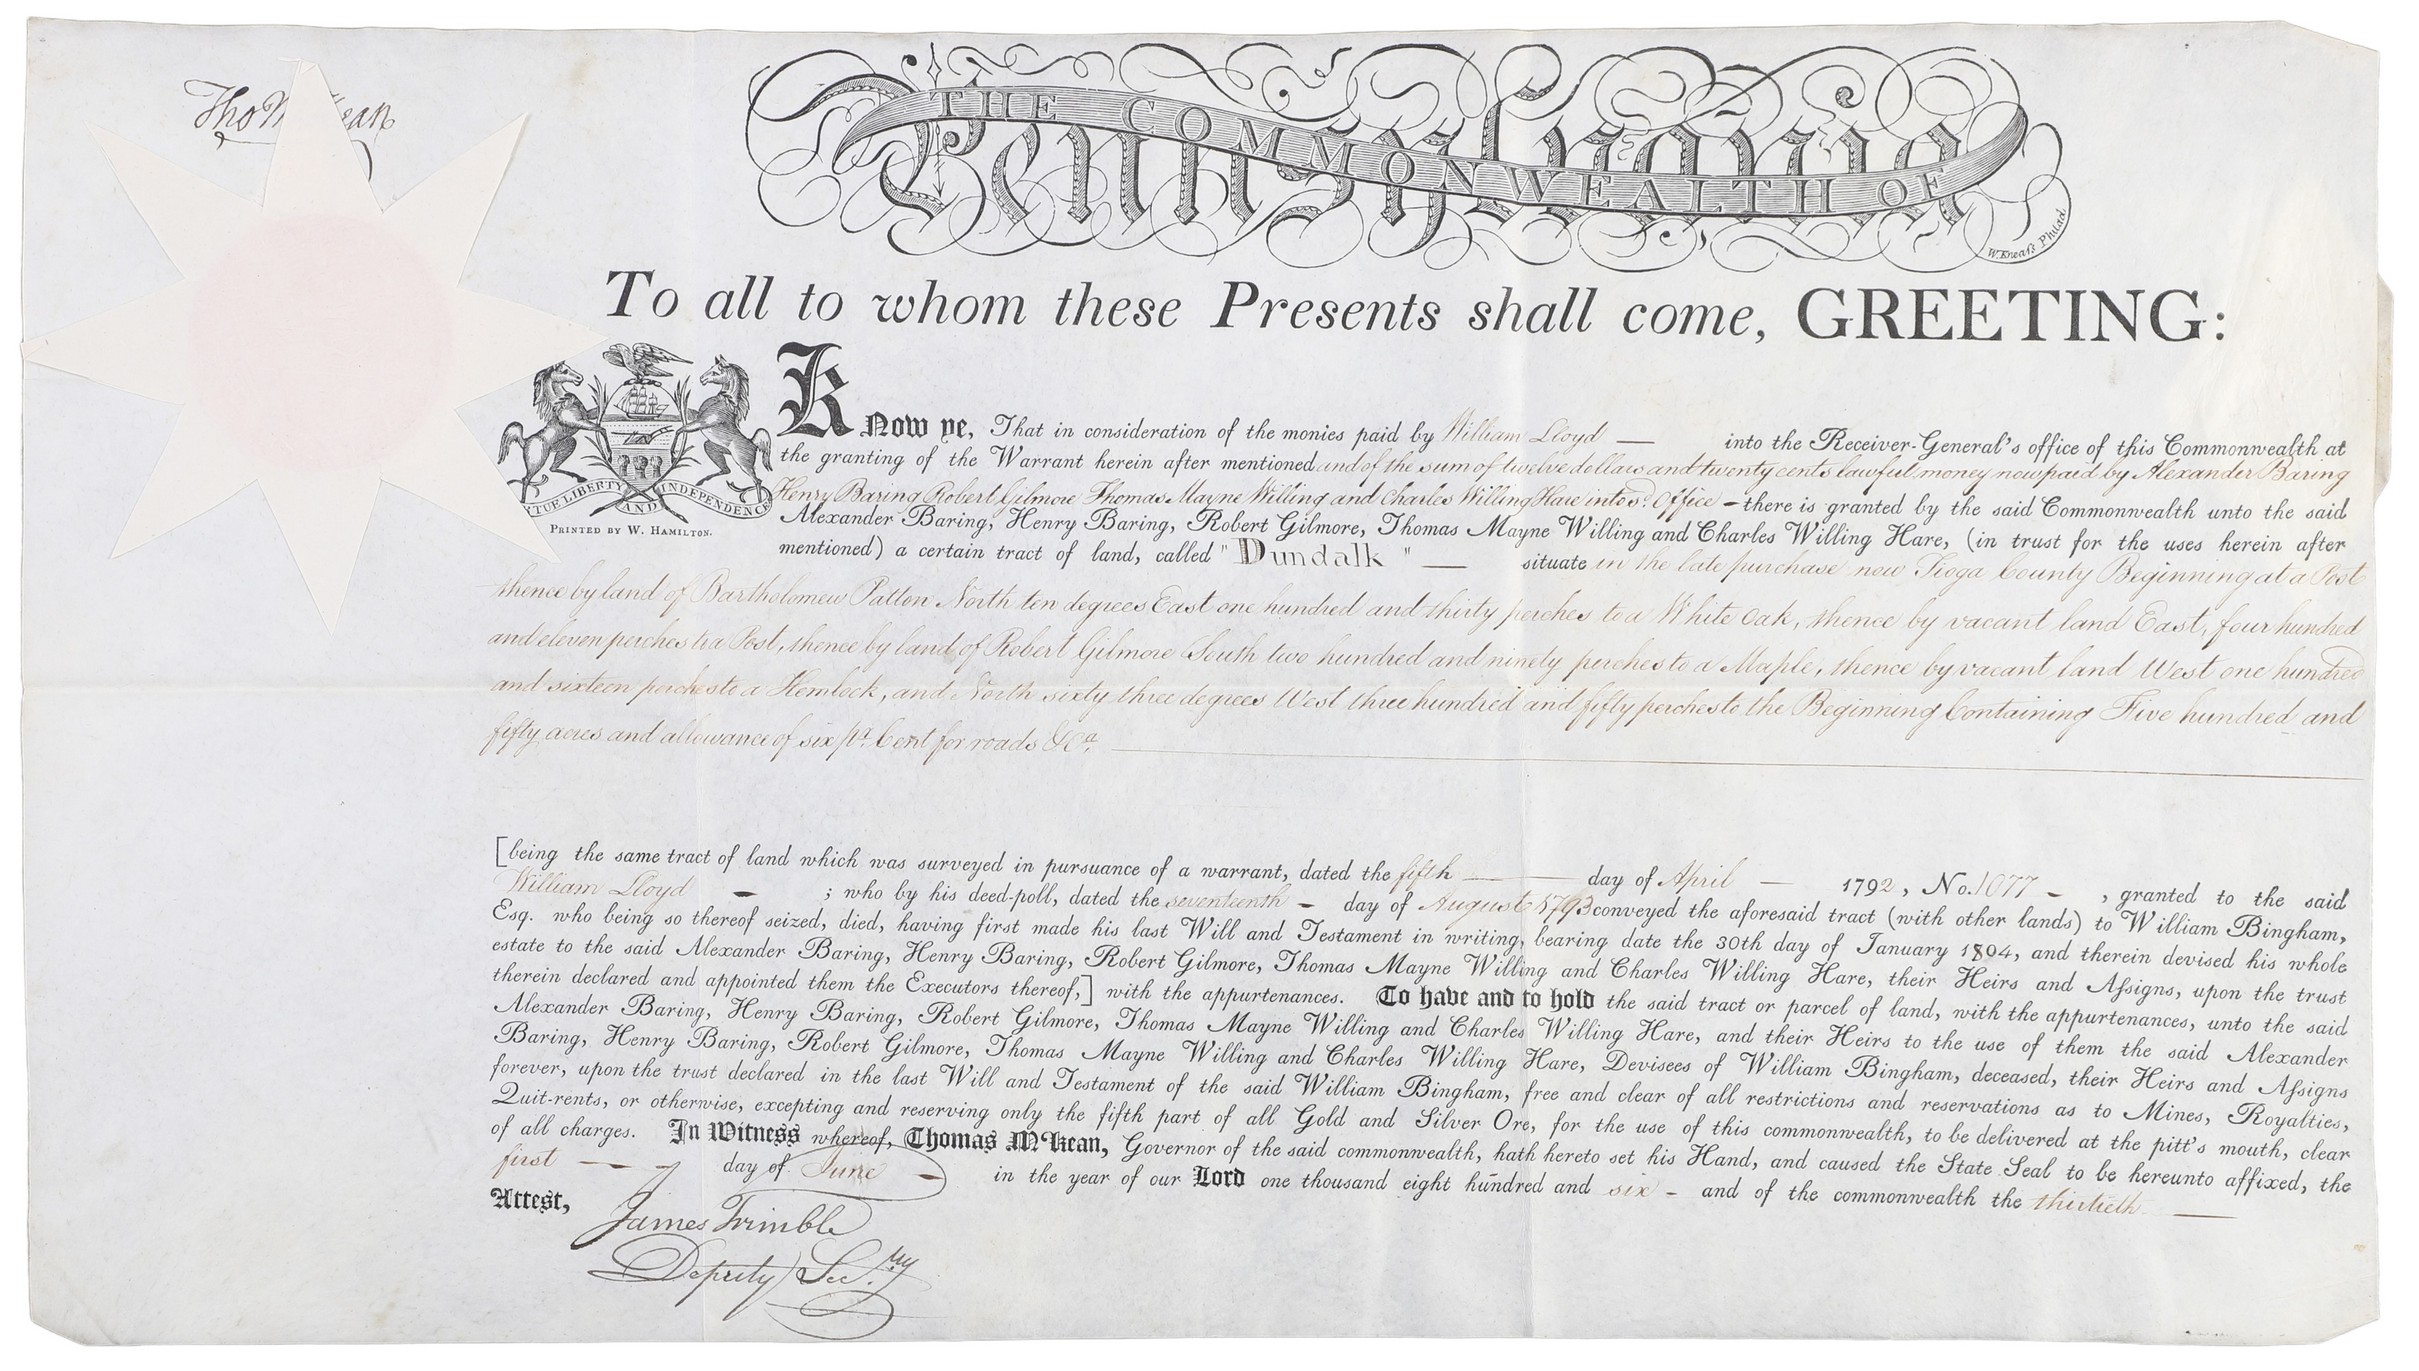 Tho M ean
THE COMMONWEALTH OF
Pennsylvania
W. Kneaſs Philad.
To all to whom these Presents shall come, GREETING:
TUE LIBERTY AND INDEPENDENCE
PRINTED BY W. HAMILTON.
Know ye, That in consideration of the monies paid by William Lloyd — into the Receiver-General's office of this Commonwealth at
the granting of the Warrant herein after mentioned and of the sum of twelve dollars and twenty cents lawful money now paid by Alexander Baring
Henry Baring Robert Gilmore Thomas Mayne Willing and Charles Willing Hare into sd. Office — there is granted by the said Commonwealth unto the said
Alexander Baring, Henry Baring, Robert Gilmore, Thomas Mayne Willing and Charles Willing Hare, (in trust for the uses herein after
mentioned) a certain tract of land, called "Dundalk" — situate in the late purchase now Tioga County Beginning at a Post
thence by land of Bartholomew Patton North ten degrees East one hundred and thirty perches to a White Oak, thence by vacant land East, four hundred
and eleven perches to a Post, thence by land of Robert Gilmore South two hundred and ninety perches to a Maple, thence by vacant land West one hundred
and sixteen perches to a Hemlock, and North sixty three degrees West three hundred and fifty perches to the Beginning Containing Five hundred and
fifty acres and allowance of six pr. Cent for roads &Ca.
[being the same tract of land which was surveyed in pursuance of a warrant, dated the fifth — day of April — 1792, No. 1077 - , granted to the said
William Lloyd - ; who by his deed-poll, dated the seventeenth - day of August 1793 conveyed the aforesaid tract (with other lands) to William Bingham,
Esq. who being so thereof seized, died, having first made his last Will and Testament in writing, bearing date the 30th day of January 1804, and therein devised his whole
estate to the said Alexander Baring, Henry Baring, Robert Gilmore, Thomas Mayne Willing and Charles Willing Hare, their Heirs and Aſsigns, upon the trust
therein declared and appointed them the Executors thereof,] with the appurtenances. To have and to hold the said tract or parcel of land, with the appurtenances, unto the said
Alexander Baring, Henry Baring, Robert Gilmore, Thomas Mayne Willing and Charles Willing Hare, and their Heirs to the use of them the said Alexander
Baring, Henry Baring, Robert Gilmore, Thomas Mayne Willing and Charles Willing Hare, Devisees of William Bingham, deceased, their Heirs and Aſsigns
forever, upon the trust declared in the last Will and Testament of the said William Bingham, free and clear of all restrictions and reservations as to Mines, Royalties,
Quit-rents, or otherwise, excepting and reserving only the fifth part of all Gold and Silver Ore, for the use of this commonwealth, to be delivered at the pitt's mouth, clear
of all charges. In Witness whereof, Thomas M'Kean, Governor of the said commonwealth, hath hereto set his Hand, and caused the State Seal to be hereunto affixed, the
first — day of June - in the year of our Lord one thousand eight hundred and six - and of the commonwealth the thirtieth. —
Attest,
James Trimble
Deputy Secry